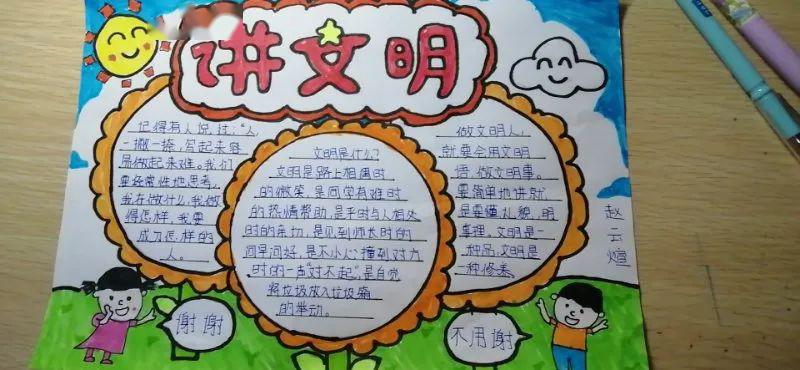 讲文明
记得有人说过："人,
一撇一捺，写起来容
易做起来难。我们
要经常性地思考，
我在做什么，我做
得怎样，我要
成为怎样的
人。
文明是什么？
文明是路上相遇时
的微笑，是同学有难时
的热情帮助，是平时与人相处
时的亲切，是见到师长时的
问早问好，是不小心撞到对方
时的一声"对不起"，是自觉
将垃圾放入垃圾箱
的举动。
做文明人，
就要会用文明
语，做文明事。
要简单地讲就
是要懂礼貌，明
事理，文明是一
种品，文明是
一种修养。
赵云煊
谢谢
不用谢